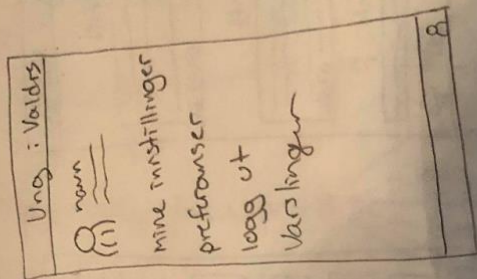 Ung i Valdrs
navn
mine innstillinger
preferanser
logg ut
Varslinger